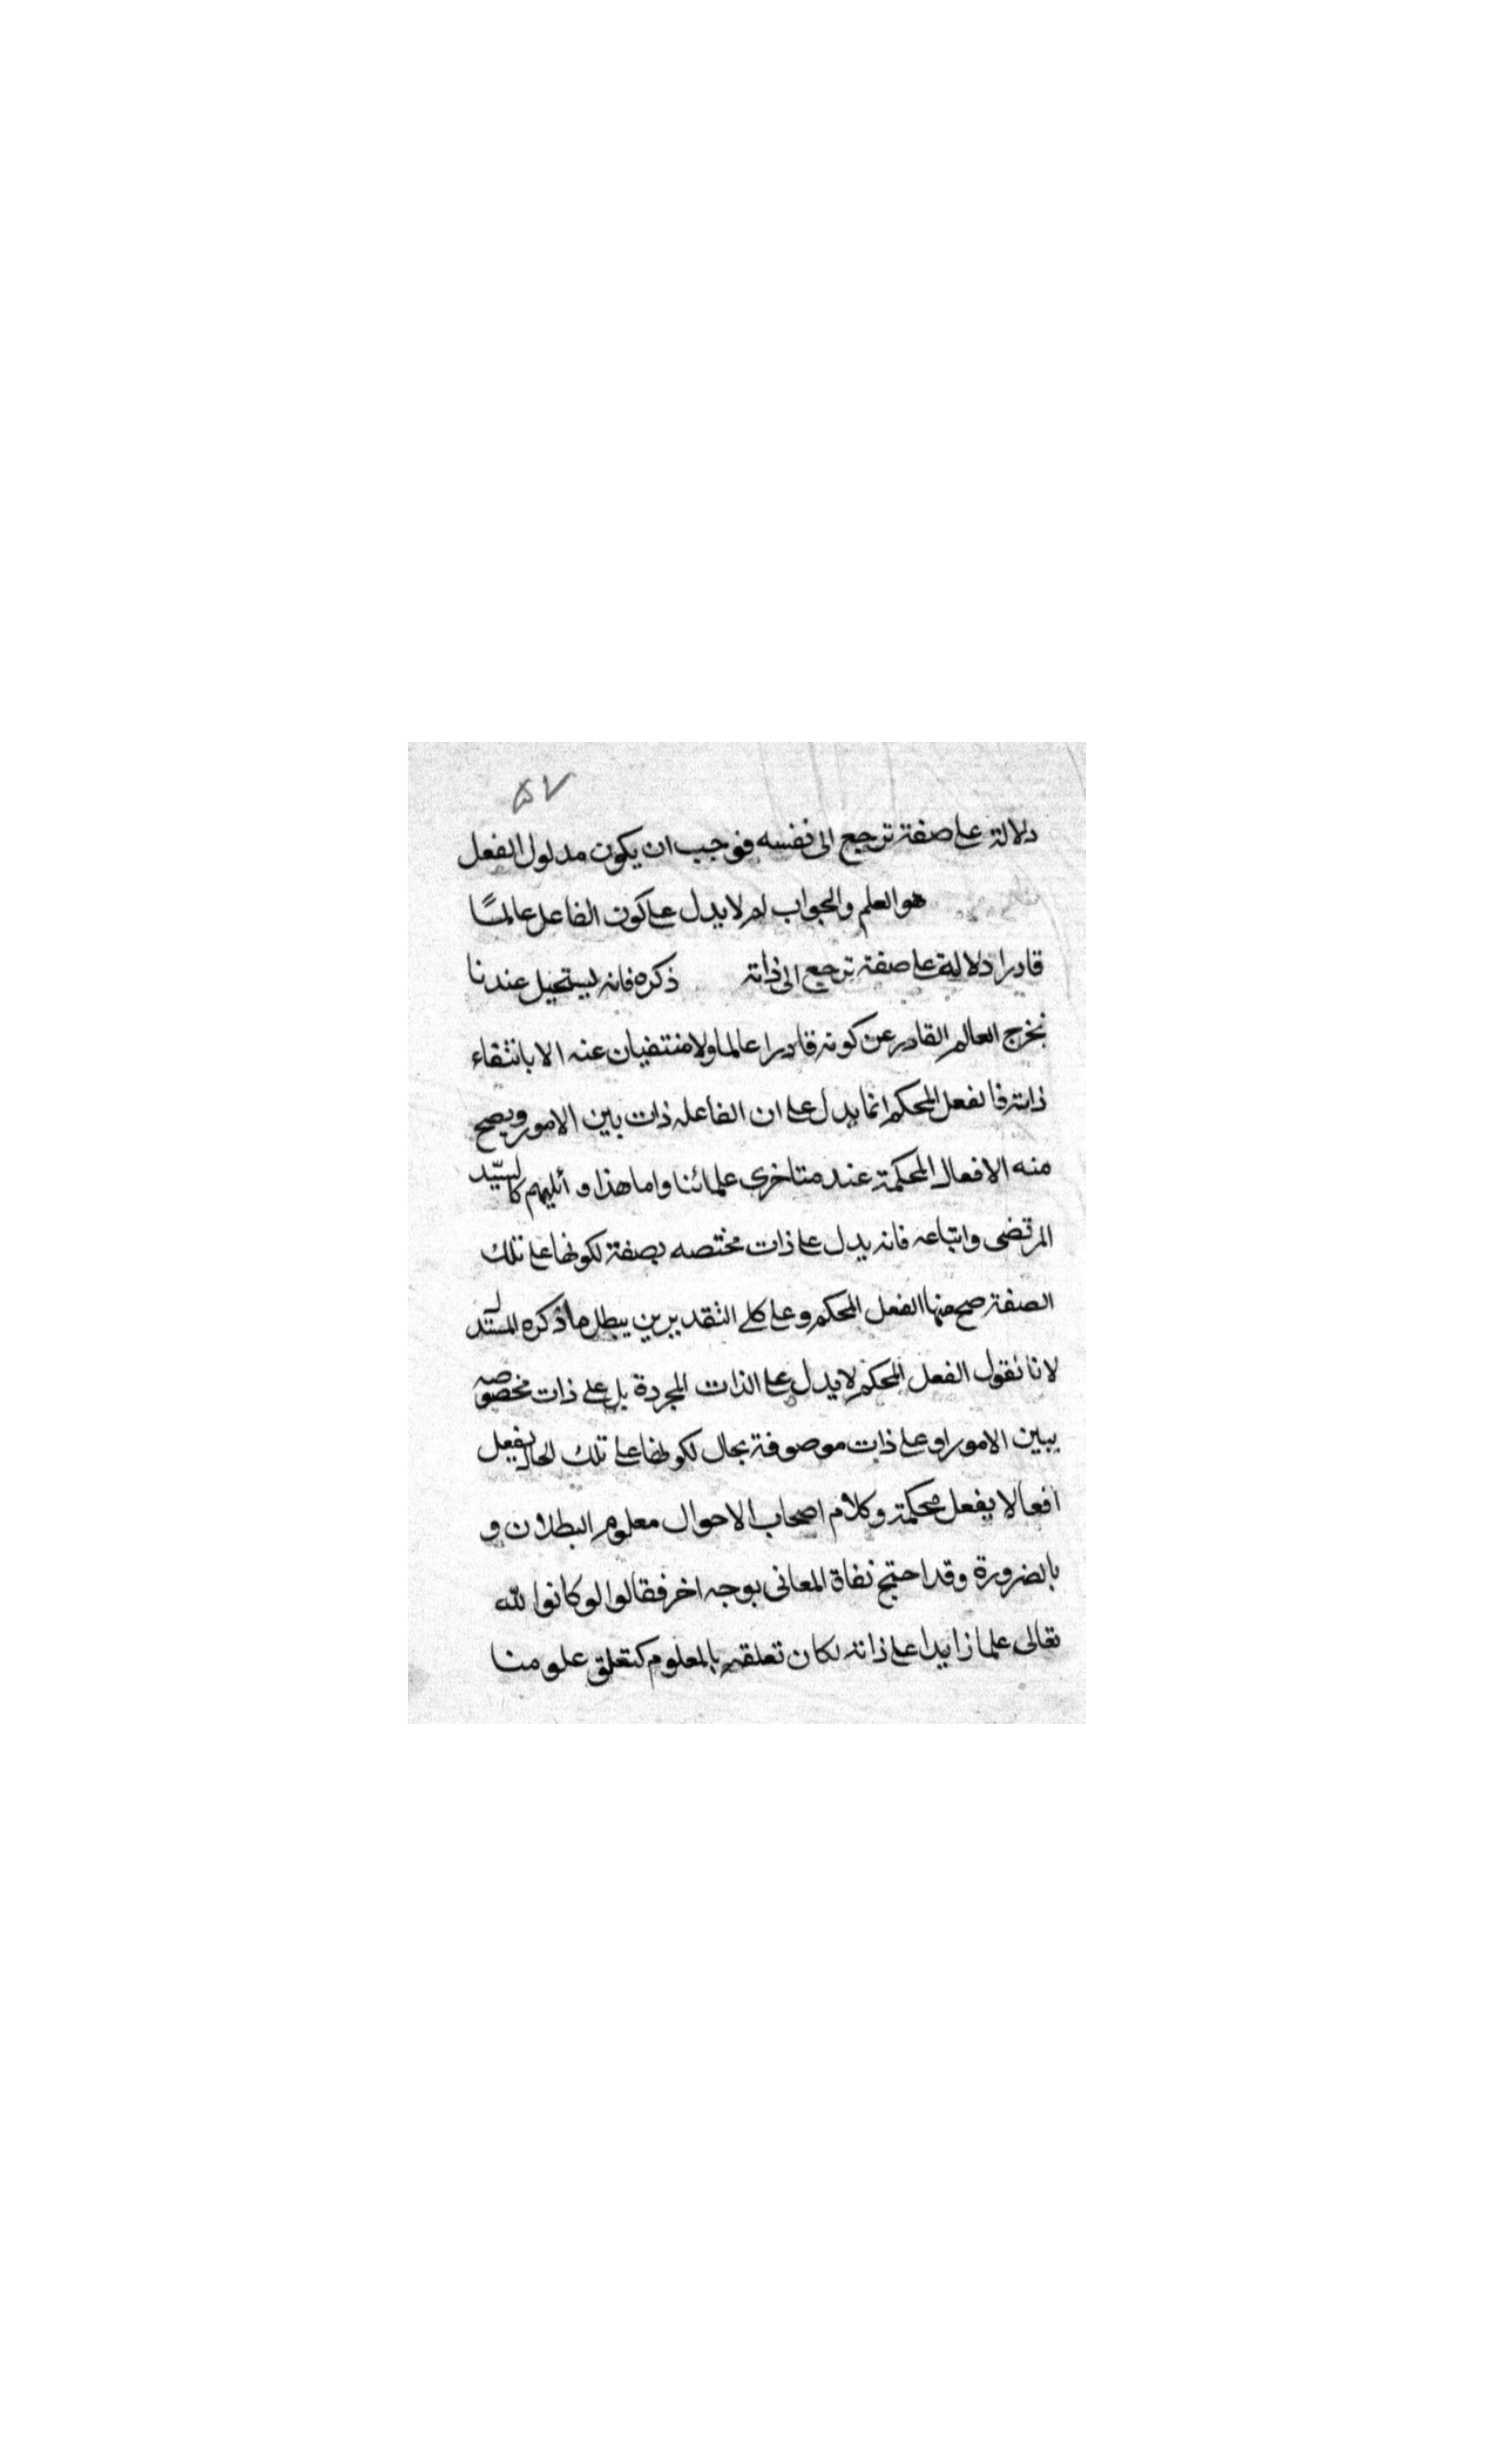 ۵۷
دلالة على صفة ترجع الى نفسه فوجب ان يكون مدلول الفعل
هو العلم والجواب لم لا يدل على كون الفاعل عالمًا
قادرا دلالة على صفة ترجع الى ذاته ذكره فانه يستحيل عندنا
نخرج العالم القادر عن كونه قادرا عالما ولا منتفيان عنه الا بانتفاء
ذاته فالفعل المحكم انما يدل على ان الفاعله ذات بين الامور ويصح
منه الافعال المحكمة عند متاخرى علمائنا واما هذا و أئليهم كالسيّد
المرتضى واتباعه فانه يدل على ذات مختصه بصفة لكونها على تلك
الصفة صح منها الفعل المحكم وعلى كلي التقديرين يبطل ما ذكره المستدل
لانا نقول الفعل المحكم لا يدل على الذات المجردة بل على ذات مخصوصه
يبين الامور او على ذات موصوفة بحال لكونها على تلك الحال يفعل
افعالا يفعل محكمة وكلام اصحاب الاحوال معلوم البطلان و
بالضرورة وقد احتج نفاة المعانى بوجه اخر فقالوا لو كانوا لله
تعالى علما زايدا على ذاته لكان تعلقه بالمعلوم كتعلق علومنا